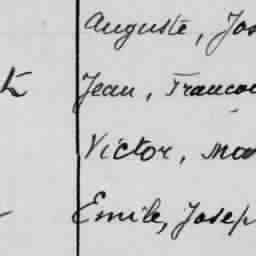 Auguste, Jos
Jean, Francoi
Victor, Mar
Emile, Josep